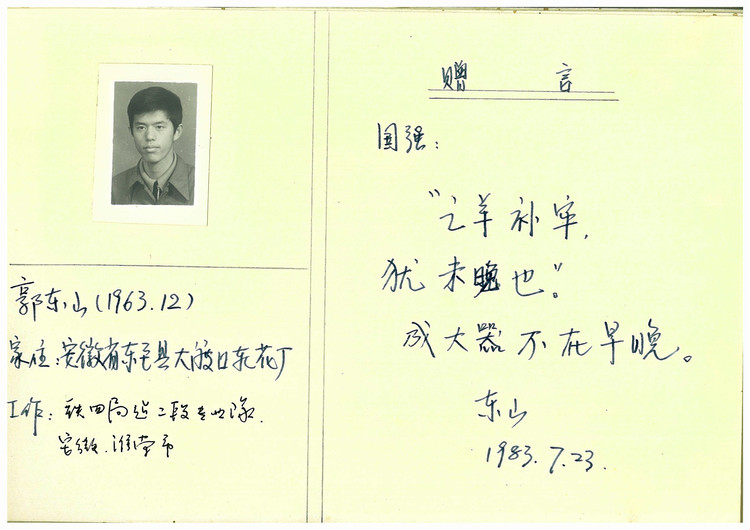 郭东山(1963.12)
家庄:安徽省东至县大渡口轧花厂
工作:铁四局
安徽.淮南市
赠 言
国强:
"亡羊补牢,
犹未晚也"。
成大器不在早晚。
东山
1983.7.23.